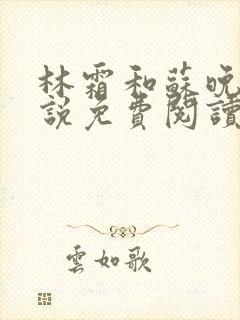 林霜和蘇晚
說免費閱讀
雲如歌